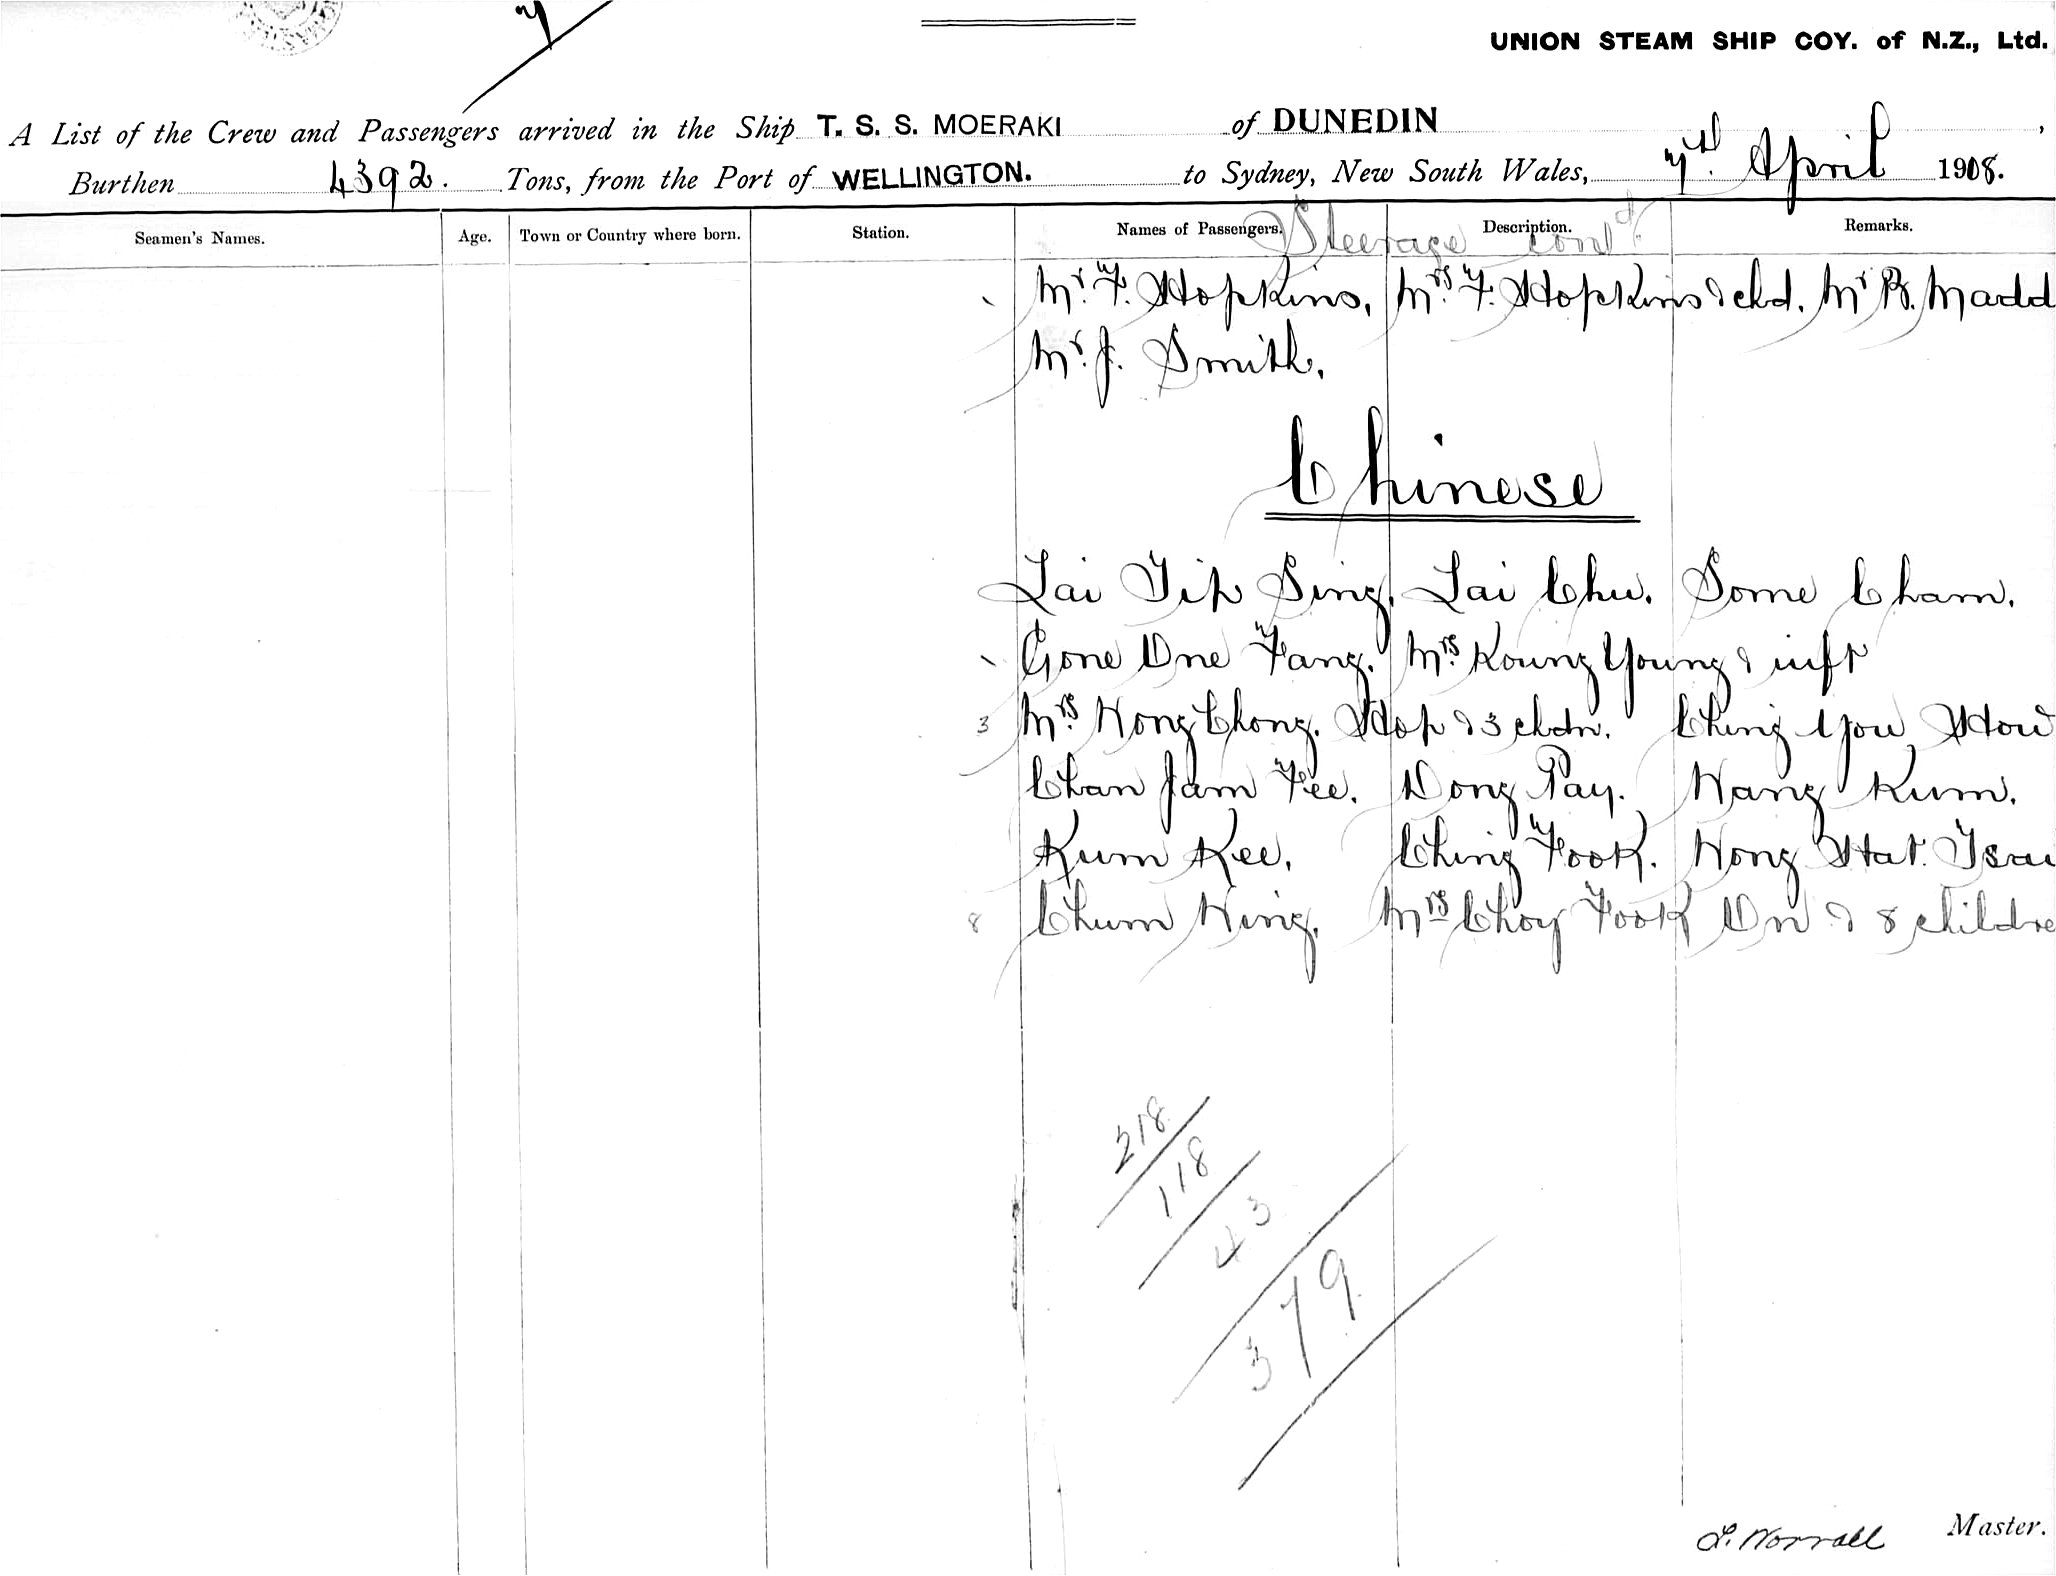 UNION STEAM SHIP COY. of N.Z., Ltd.
A List of the Crew and Passengers arrived in the Ship T. S. S. MOERAKI of DUNEDIN,
Burthen 4392. Tons, from the Port of WELLINGTON. to Sydney, New South Wales, 7th. April 1908.
Seamen's Names. Age. Town or Country where born. Station. Names of Passengers. Description. Remarks.
Steerage contd.
Mr. F. Hopkins, Mrs. F. Hopkins & chd. Mr. B. Madd
Mr. J. Smith.
Chinese
Lai Tip Sing. Lai Chu. Some Cham.
Gone One Fang. Mrs. Koung Young & inft
3 Mrs. Wong Chong. Hop & 3 chdn. Ching You How
Chan Jam Fee. Dong Pay. Wang Kum.
Kum Kee. Ching Fook. Wong Hat. Tsai
8 Chum Wing. Mrs. Choy Fook On & 8 childre
218
118
43
379
L. Worrall Master.